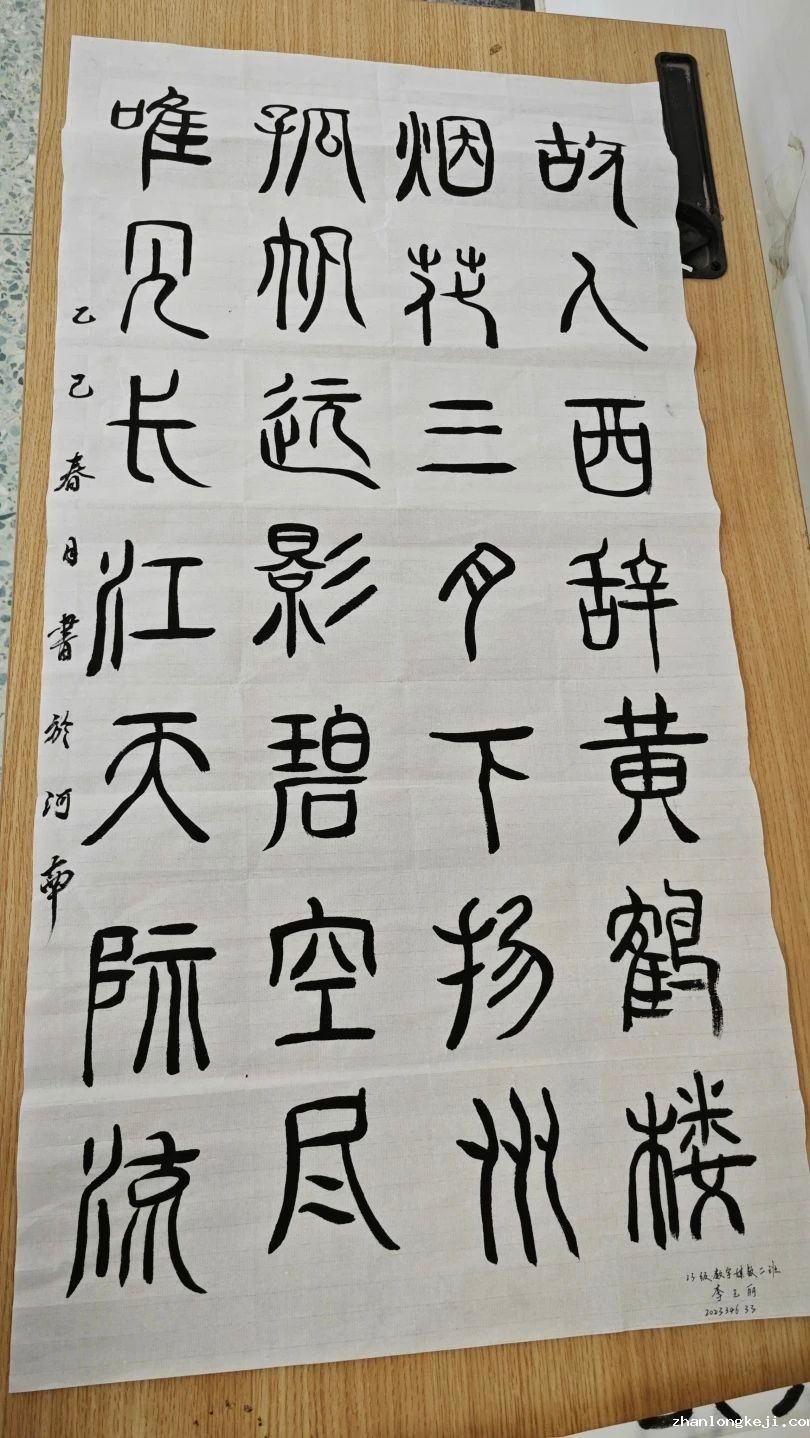 故人西辞黄鹤楼
烟花三月下扬州
孤帆远影碧空尽
唯见长江天际流
乙巳春月书於河南
23级数字媒技二班
李
202334633
zhanlongkeji.com